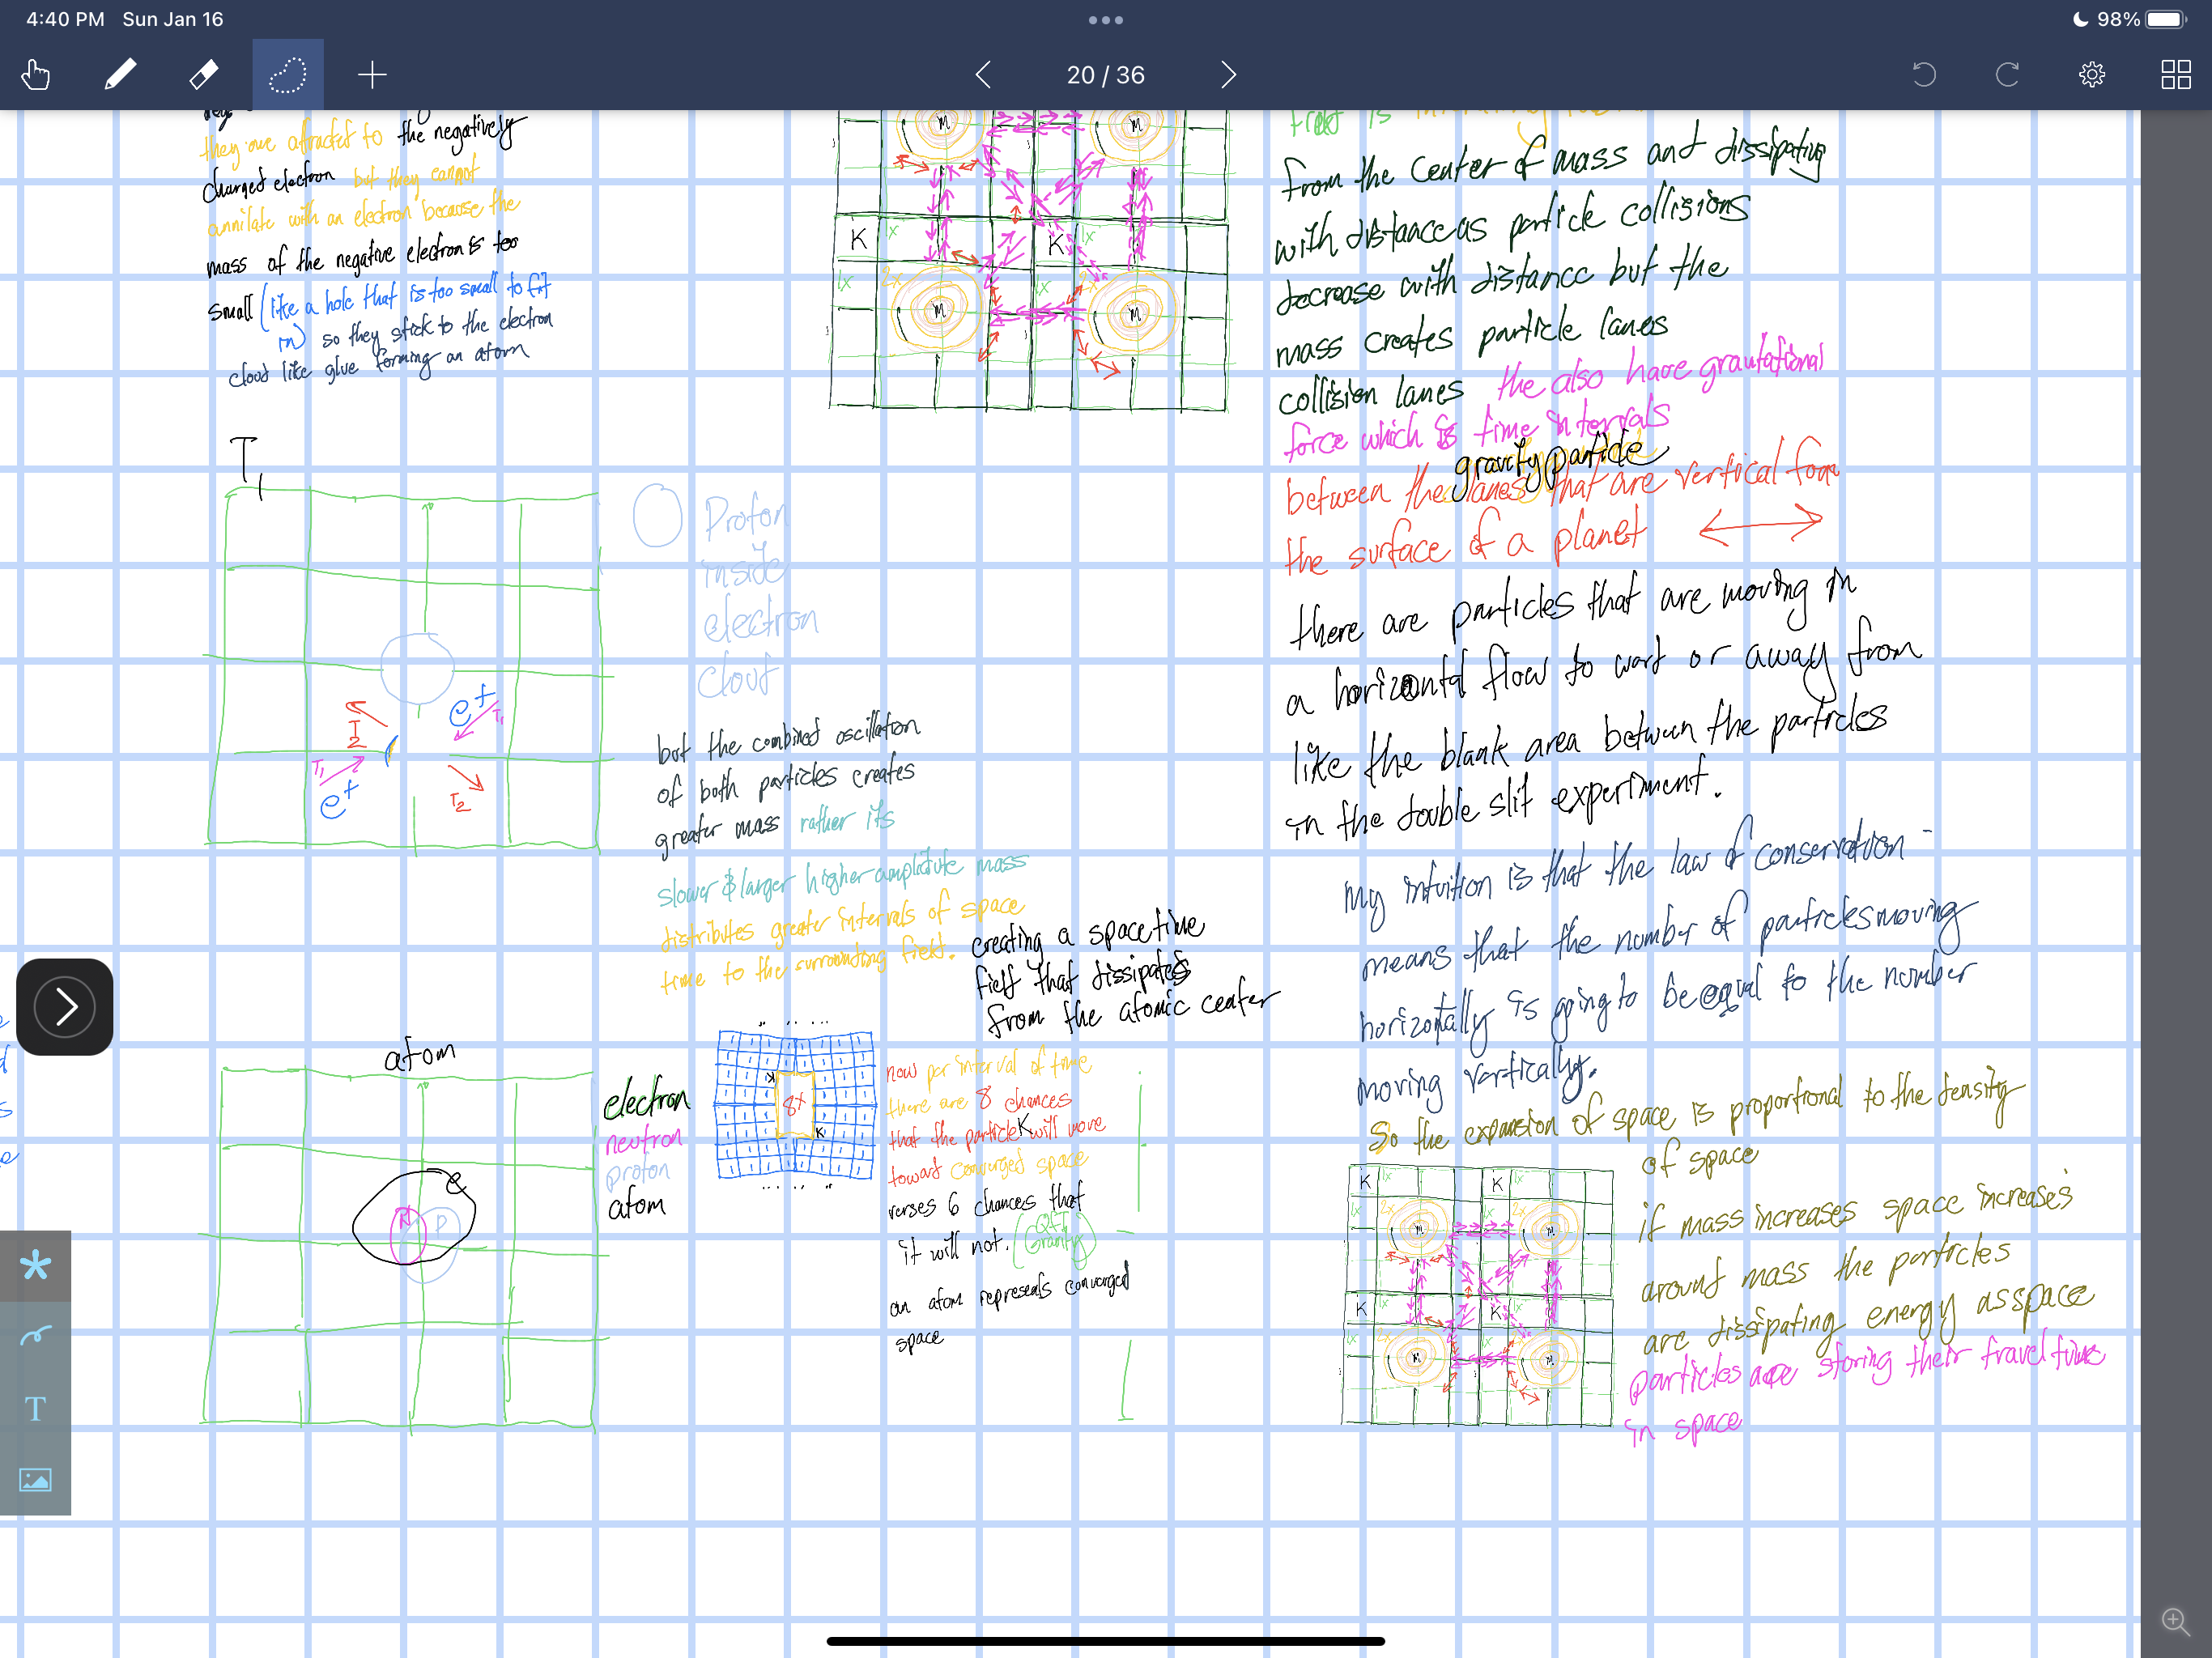 4:40 PM Sun Jan 16
98%
20 / 36
they are attractet to the negatively
charged electron but they cannot
annilate with an electron because the
mass of the negative electron is too
small (like a hole that is too small to fit
in) so they stick to the electron
cloud like glue forming an atom
T1
Proton
inside
electron
cloud
e+
T1
T2
T1
e+
T2
but the combined oscillation
of both particles creates
greater mass rather its
slower & larger higher amplitute mass
distributes greater intervals of space
time to the surrounding field.
creating a space time
field that dissipates
from the atomic center
atom
electron
neutron
proton
atom
e
P
8x
K
now per interval of time
there are 8 chances
that the particle K will move
toward converged space
verses 6 chances that
it will not. (QFT
Gravity)
an atom represents converged
space
M
M
K
1x
K
1x
1x
2x
1x
M
M
from the center of mass and dissipating
with distance as particle collisions
decrease with distance but the
mass creates particle lanes
collision lanes the also have gravitational
force which is time intervals
gravity particle
between the lanes that are vertical from
the surface of a planet
there are particles that are moving in
a horizontal flow to wart or away from
like the blank area between the particles
in the double slit experiment.
My intuition is that the law of conservation -
means that the number of particles moving
horizontally is going to be equal to the number
moving vertically.
So the expansion of space is proportional to the density
of space
if mass increases space increases
around mass the particles
are dissipating energy as space
particles are storing their travel time
in space
K
1x
K
1x
1x
2x
2x
M
M
K
1x
K
1x
2x
1x
M
M
T